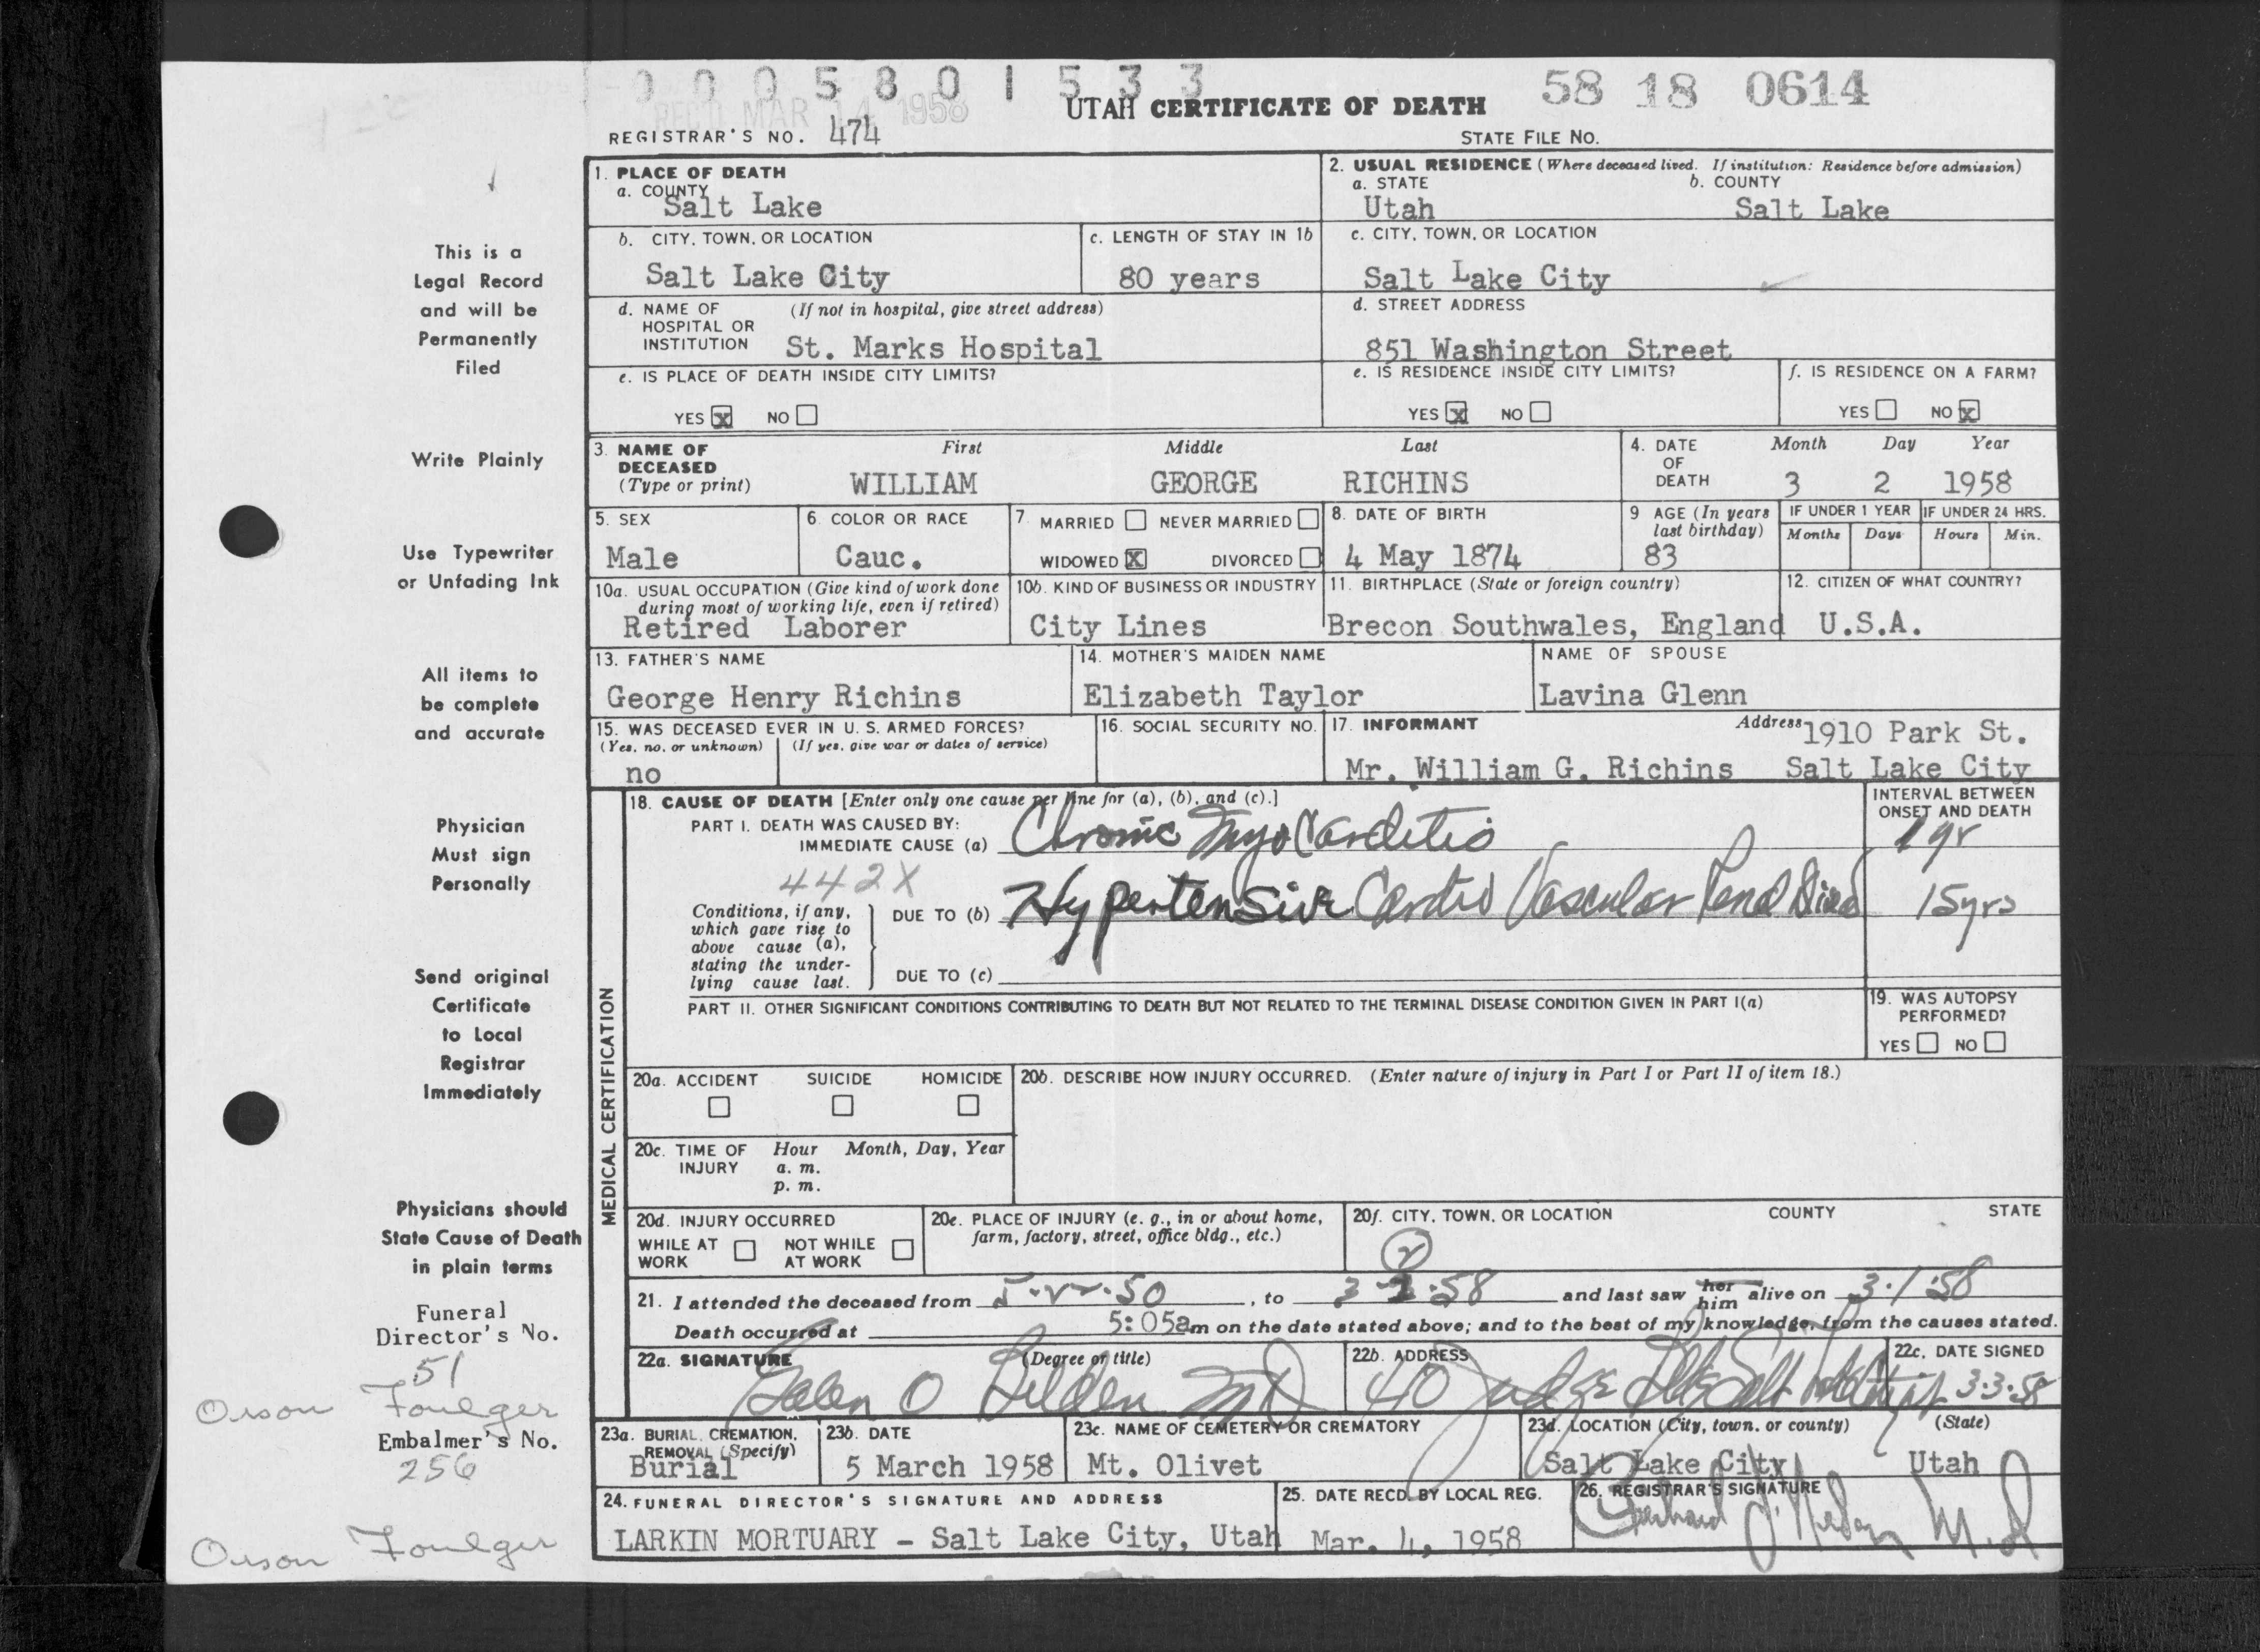 0005801533
REC'D MAR 14 1958
UTAH CERTIFICATE OF DEATH
58 18 0614
REGISTRAR'S NO. 474
STATE FILE NO.
This is a
Legal Record
and will be
Permanently
Filed
Write Plainly
Use Typewriter
or Unfading Ink
All items to
be complete
and accurate
Physician
Must sign
Personally
Send original
Certificate
to Local
Registrar
Immediately
Physicians should
State Cause of Death
in plain terms
Funeral
Director's No.
51
Orson Foulger
Embalmer's No.
256
Orson Foulger
1. PLACE OF DEATH
a. COUNTY
Salt Lake
2. USUAL RESIDENCE (Where deceased lived. If institution: Residence before admission)
a. STATE b. COUNTY
Utah Salt Lake
b. CITY, TOWN, OR LOCATION
Salt Lake City
c. LENGTH OF STAY IN 1b
80 years
c. CITY, TOWN, OR LOCATION
Salt Lake City
d. NAME OF (If not in hospital, give street address)
HOSPITAL OR
INSTITUTION St. Marks Hospital
d. STREET ADDRESS
851 Washington Street
e. IS PLACE OF DEATH INSIDE CITY LIMITS?
YES X NO
e. IS RESIDENCE INSIDE CITY LIMITS?
YES X NO
f. IS RESIDENCE ON A FARM?
YES NO X
3. NAME OF DECEASED (Type or print)
First Middle Last
WILLIAM GEORGE RICHINS
4. DATE OF DEATH
Month Day Year
3 2 1958
5. SEX
Male
6. COLOR OR RACE
Cauc.
7. MARRIED NEVER MARRIED
WIDOWED X DIVORCED
8. DATE OF BIRTH
4 May 1874
9 AGE (In years last birthday)
83
IF UNDER 1 YEAR IF UNDER 24 HRS.
Months Days Hours Min.
10a. USUAL OCCUPATION (Give kind of work done
during most of working life, even if retired)
Retired Laborer
10b. KIND OF BUSINESS OR INDUSTRY
City Lines
11. BIRTHPLACE (State or foreign country)
Brecon Southwales, England
12. CITIZEN OF WHAT COUNTRY?
U.S.A.
13. FATHER'S NAME
George Henry Richins
14. MOTHER'S MAIDEN NAME
Elizabeth Taylor
NAME OF SPOUSE
Lavina Glenn
15. WAS DECEASED EVER IN U. S. ARMED FORCES?
(Yes, no, or unknown) (If yes, give war or dates of service)
no
16. SOCIAL SECURITY NO.
17. INFORMANT Address 1910 Park St.
Mr. William G. Richins Salt Lake City
MEDICAL CERTIFICATION
18. CAUSE OF DEATH [Enter only one cause per line for (a), (b), and (c).]
INTERVAL BETWEEN
ONSET AND DEATH
PART I. DEATH WAS CAUSED BY:
IMMEDIATE CAUSE (a) Chronic Myocarditis 1 yr
442X
Conditions, if any,
which gave rise to
above cause (a),
stating the under-
lying cause last.
DUE TO (b) Hypertensive Cardio Vascular Renal 15 yrs
DUE TO (c)
PART II. OTHER SIGNIFICANT CONDITIONS CONTRIBUTING TO DEATH BUT NOT RELATED TO THE TERMINAL DISEASE CONDITION GIVEN IN PART I(a)
19. WAS AUTOPSY
PERFORMED?
YES NO
20a. ACCIDENT SUICIDE HOMICIDE
20b. DESCRIBE HOW INJURY OCCURRED. (Enter nature of injury in Part I or Part II of item 18.)
20c. TIME OF INJURY
Hour Month, Day, Year
a. m.
p. m.
20d. INJURY OCCURRED
WHILE AT WORK NOT WHILE AT WORK
20e. PLACE OF INJURY (e. g., in or about home,
farm, factory, street, office bldg., etc.)
20f. CITY, TOWN, OR LOCATION COUNTY STATE
21. I attended the deceased from , to 58 and last saw her him alive on 3·1·58
Death occurred at 5:05am on the date stated above; and to the best of my knowledge, from the causes stated.
22a. SIGNATURE (Degree or title)
Galen O Belden MD
22b. ADDRESS
40 Judge Bldg Salt Lake City
22c. DATE SIGNED
3·3·58
23a. BURIAL, CREMATION,
REMOVAL (Specify)
Burial
23b. DATE
5 March 1958
23c. NAME OF CEMETERY OR CREMATORY
Mt. Olivet
23d. LOCATION (City, town, or county) (State)
Salt Lake City Utah
24. FUNERAL DIRECTOR'S SIGNATURE AND ADDRESS
LARKIN MORTUARY - Salt Lake City, Utah
25. DATE RECD. BY LOCAL REG.
Mar. 4, 1958
26. REGISTRAR'S SIGNATURE
M.D.